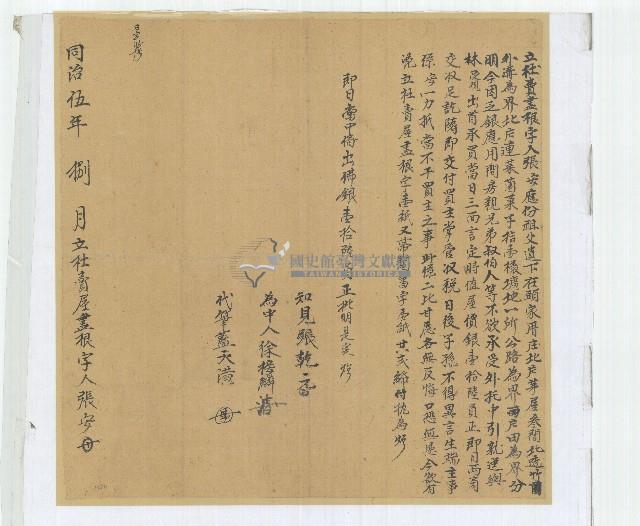 立杜賣盡根字人張安應份祖父遺下在頭家厝庄北片茅屋叁間北透竹圍
外溝為界北片連菜園菜子指壹欉壙地一所公路為界西片田為界分
明今因乏銀應用問房親兄弟叔伯人等不欲承受外托中引就送與
林 出首承買當日三面言定時值屋價銀壹拾陸員正即日兩
交收足訖隨即交付買主掌管收稅日後子孫不得異言生端主事
張安一力抵當不干買主之事此係二比甘愿各無反悔口恐無憑今欲有
凴立杜賣屋盡根字壹紙又帶 字壹紙共弍紙付執為炤
即日當中倚出佛銀壹拾陸員正批明是實炤
知見張乾
為中人徐榜麟
代筆藍天
同治伍年 捌 月 立杜賣屋盡根字人張安
國史館臺灣文獻館
TAIWAN HISTORICA